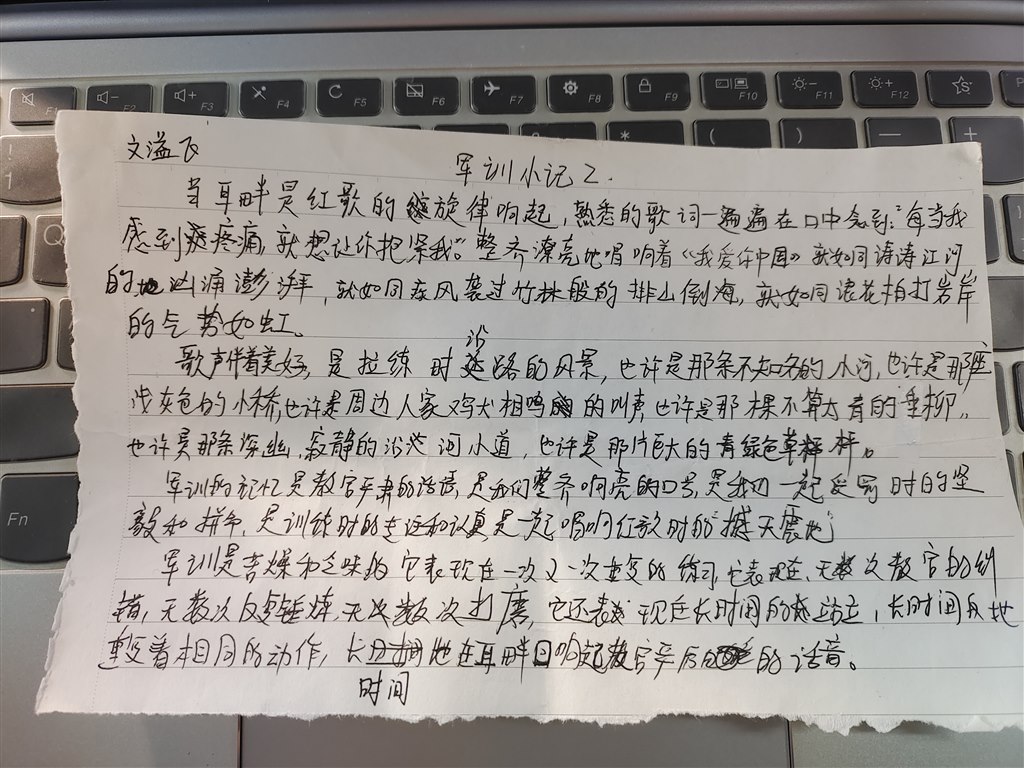 F1 F2 F3 F4 F5 F6 F7 F8 F9 F10 F11 F12
! * ( ) +
1
Q
Fn
文溢飞
军训小记2.
当耳畔是红歌的旋律响起,熟悉的歌词一遍遍在口中念到:“每当我
感到疼痛,就想让你抱紧我。”整齐漂亮地唱响着《我爱你中国》就如同涛涛江河
的汹涌澎湃,就如同疾风袭过竹林般的排山倒海,就如同浪花拍打岩岸
的气势如虹。
歌声伴着美好,是拉练时沿路的风景,也许是那条不知名的小河,也许是那座
浅灰色的小桥,也许是周边人家鸡犬相鸣的叫声,也许是那棵不算太青的垂柳,
也许是那条深幽,寂静的沿河小道,也许是那片巨大的青绿色草坪。
军训的记忆是教官严肃的话语,是我们整齐响亮的口号,是我们一起受罚时的坚
毅和拼争,是训练时的专注和认真是一起唱响红歌时的“撼天震地”
军训是苦燥和乏味的它表现在一次又一次重复的练习,它表现在,无数次教官的纠
错,无数次反复锤炼,无数次打磨,它还表现在长时间的站立,长时间地
重复着相同的动作,长时间地在耳畔响起教官严厉的话音。